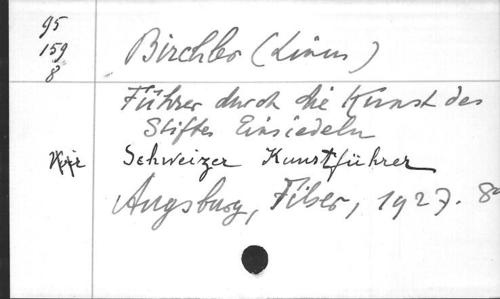 95
159
8
Birchler (Linus)
Führer durch die Kunst des
Stiftes Einsiedeln
Schweizer Kunstführer
Augsburg, Filser, 1927. 8°